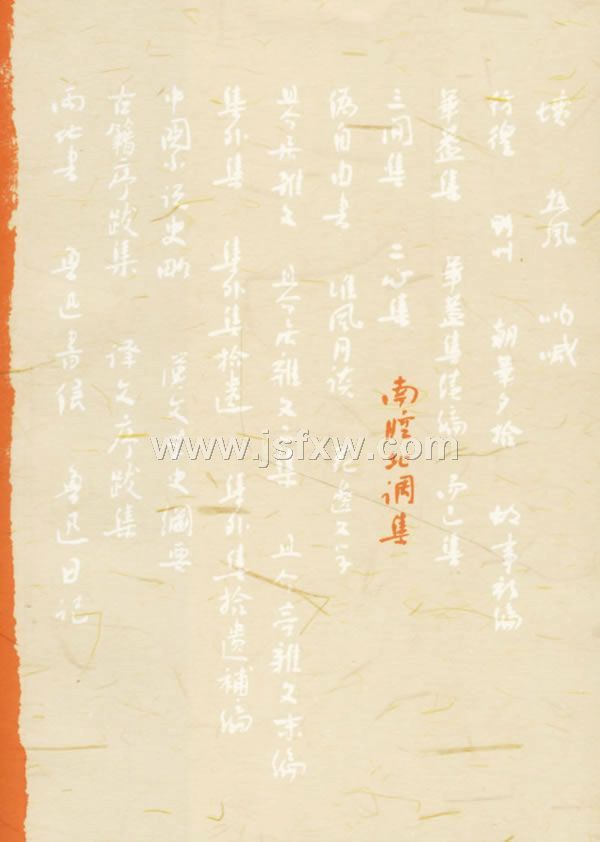 坟 热风 呐喊
彷徨 野草 朝華夕拾 故事新编
華蓋集 華蓋集续编 而已集
三闲集 二心集 南腔北调集
偽自由书 准风月谈 花边文学
且介亭雜文 且介亭雜文二集 且介亭雜文末编
集外集 集外集拾遗 集外集拾遗補编
中国小说史略 汉文学史纲要
古籍序跋集 译文序跋集
两地书 鲁迅書信 鲁迅日记
www.jsfxw.com